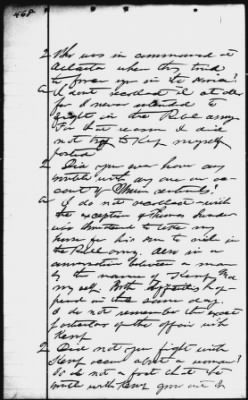 468
Q Who was in command at
Atlanta when they tried
to force you in the service?
A I don't recollect it at all
for I never intended to
fight in the Rebel army
For that reason I did
not try to keep myself
posted
Q Did you ever have any
trouble with any one on ac-
count of Union sentiments?
A I do not recollect with
the exception of Thomas
who threatened to take my
horse for his son to ride in
the Rebel army. Also in a
between a man
by the name of Kemp and
myself. Both hap-
pened on the same day.
I do not remember the exact
particulars of the affair with
Kemp
Q Did not your fight with
Kemp occur about a woman?
Is it not a fact that the
trouble with Kemp grew out